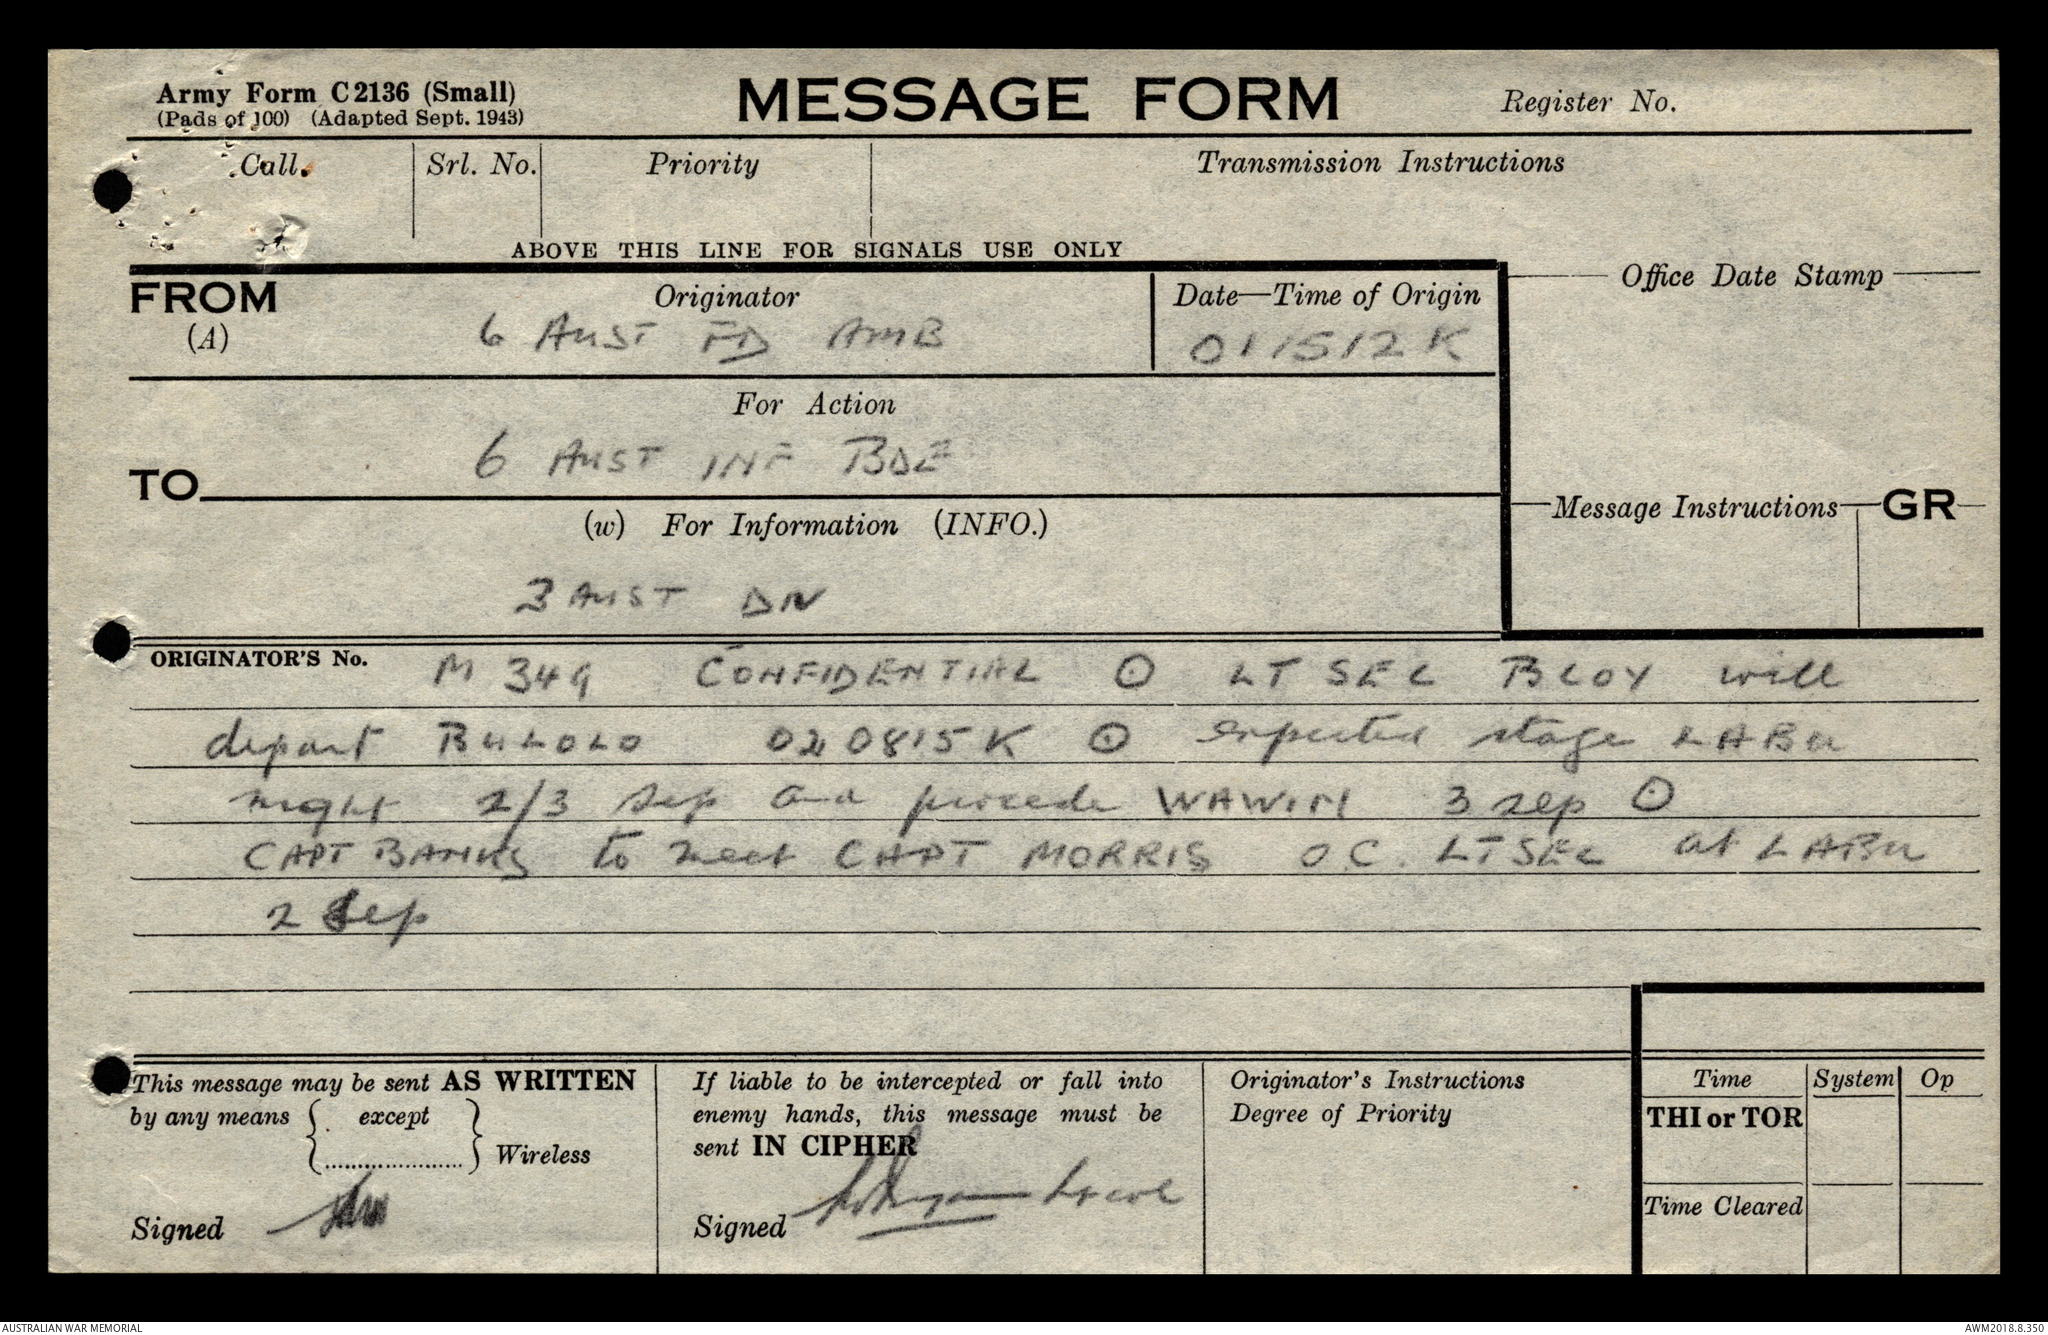 Army Form C2136 (Small)
(Pads of 100) (Adapted Sept. 1943)
MESSAGE FORM
Register No.
Call.
Srl. No.
Priority
Transmission Instructions
ABOVE THIS LINE FOR SIGNALS USE ONLY
FROM
(A)
Originator
6 AUST FD AMB
Date—Time of Origin
011512K
Office Date Stamp
For Action
6 AUST INF BDE
TO
(w) For Information (INFO.)
3 AUST DN
Message Instructions
GR
ORIGINATOR'S No. M 349 CONFIDENTIAL ⊙ LT SEC BLOY will
depart BULOLO 020815K ⊙ expected stage LABU
night 2/3 Sep and procede WAWIN 3 sep ⊙
CAPT BANKS to meet CAPT MORRIS O.C. LT SEC at LABU
2 Sep
This message may be sent AS WRITTEN
by any means { except
...................... } Wireless
Signed
If liable to be intercepted or fall into
enemy hands, this message must be
sent IN CIPHER
Signed Lt Col
Originator's Instructions
Degree of Priority
Time
System
Op
THI or TOR
Time Cleared
AUSTRALIAN WAR MEMORIAL
AWM2018.8.350